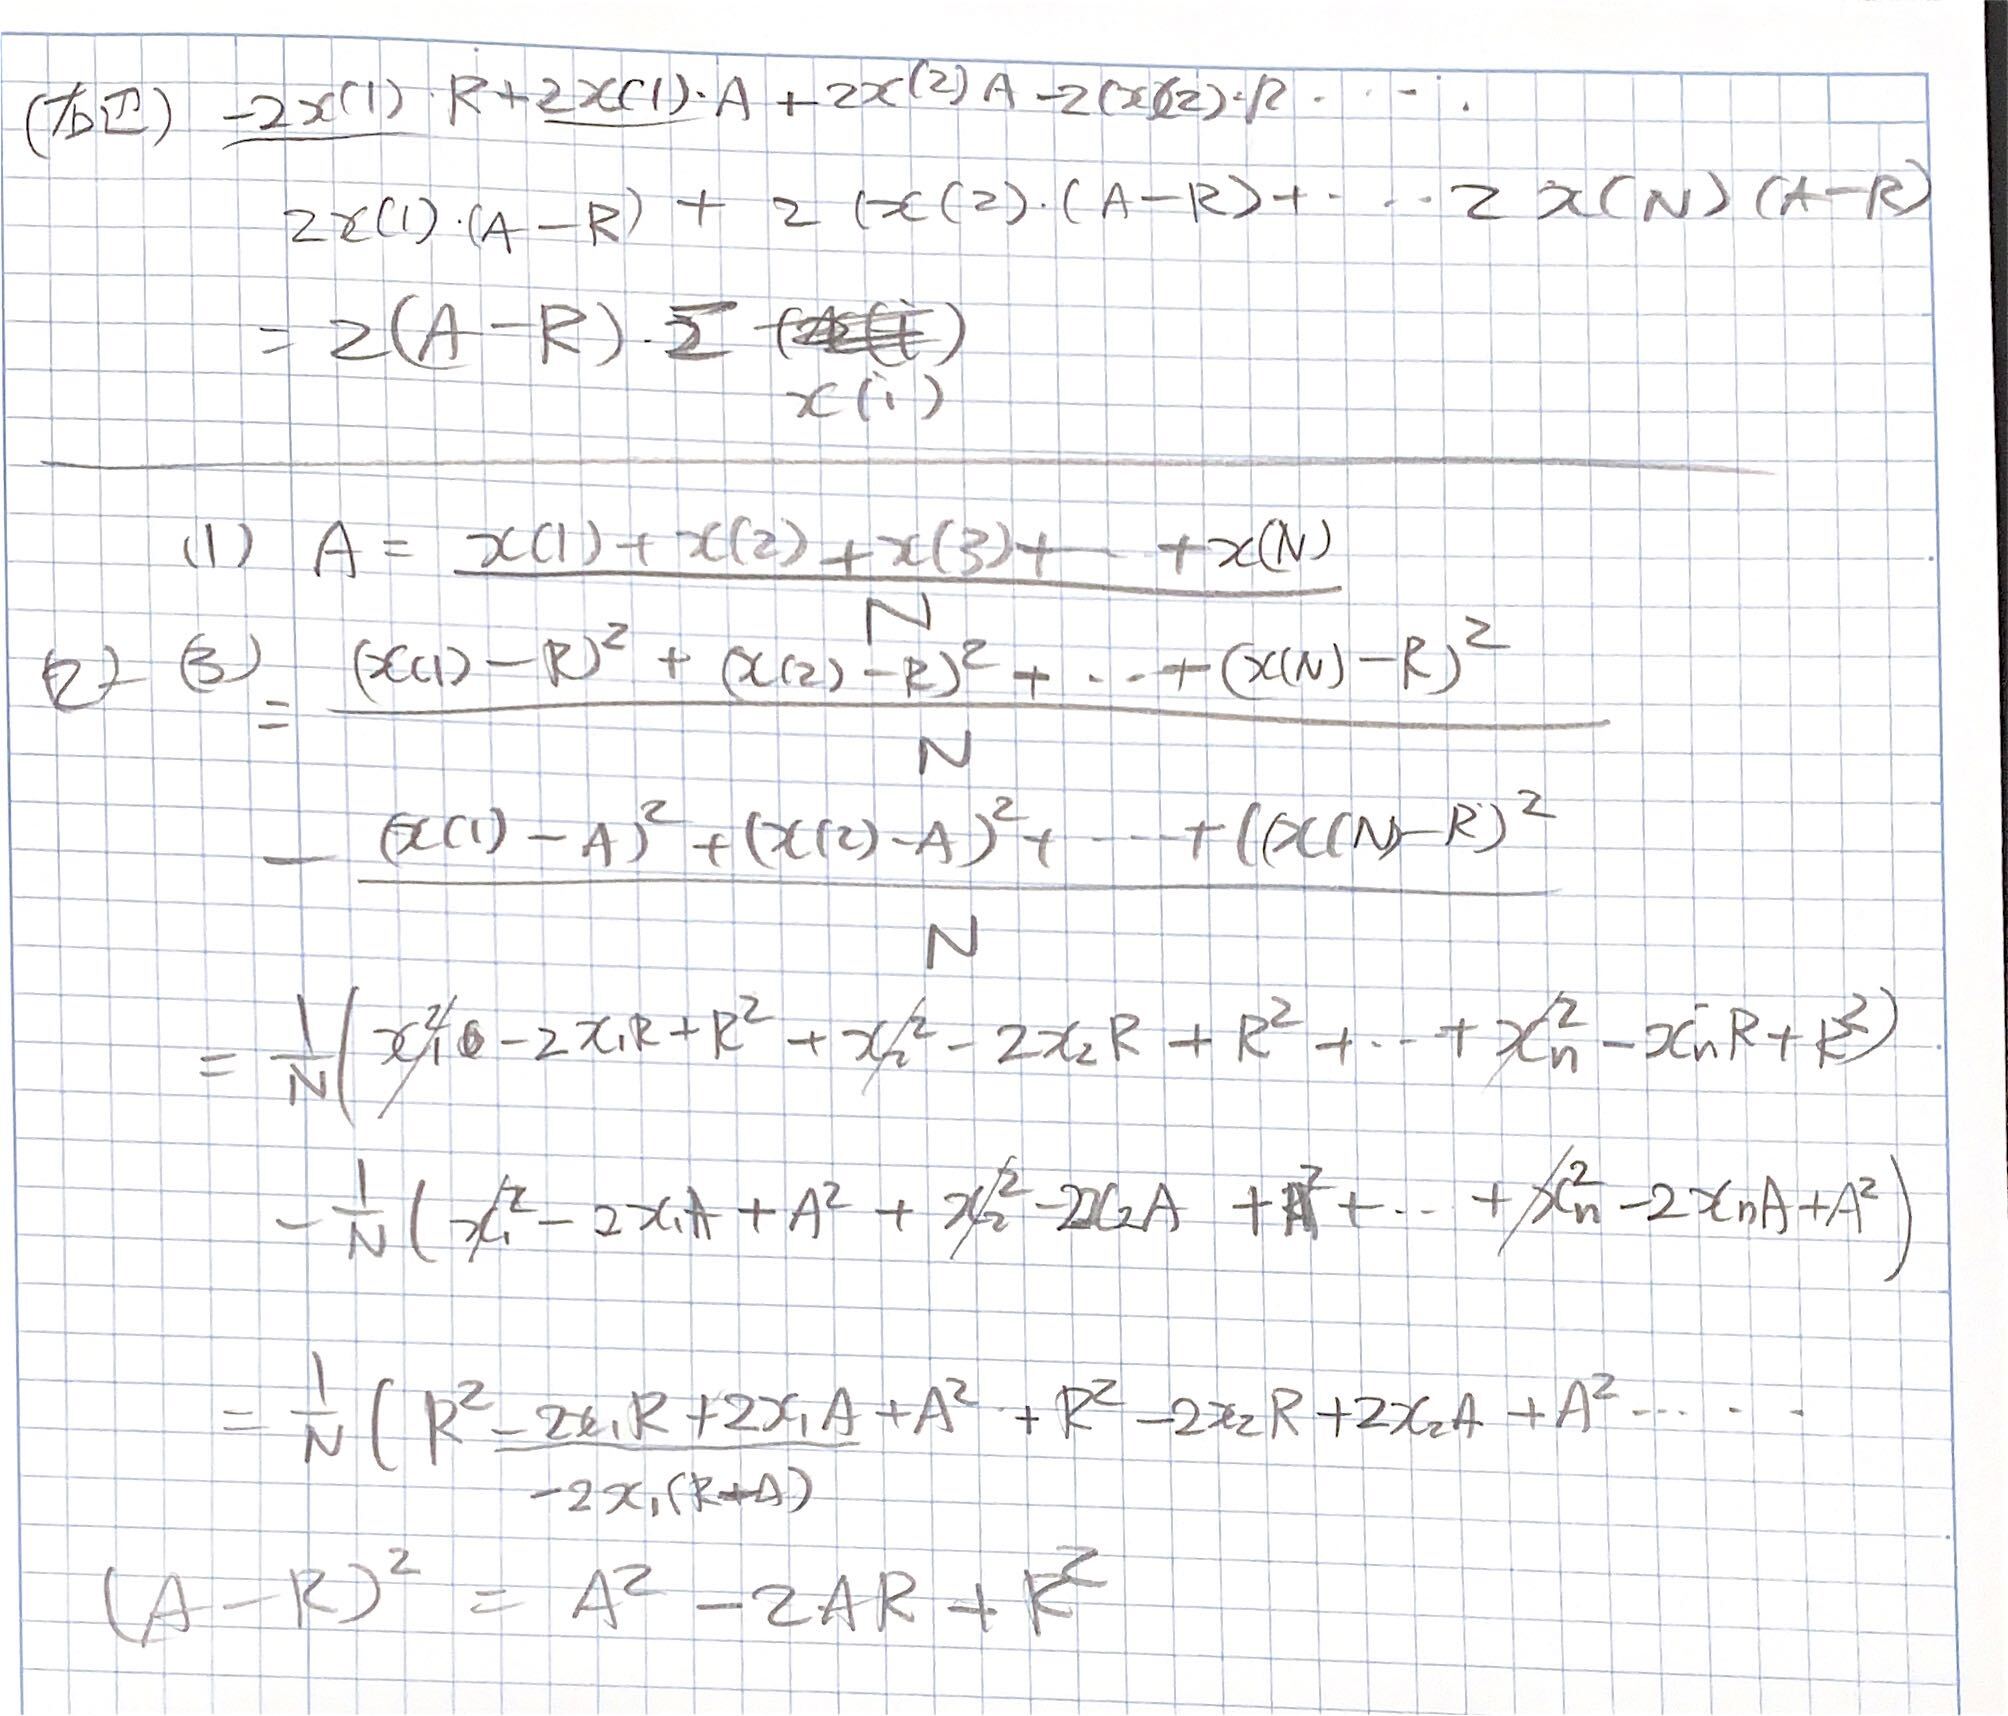 (右辺) -2x(1)・R+2x(1)・A+2x(2)A-2(x(2)・R ‥‥.
2x(1)・(A-R) + 2 (x(2)・(A-R)+‥‥2 x(N)(A-R)
= 2(A-R)・Σ
x(i)
(1) A = x(1)+x(2)+x(3)+‥+x(N)
N
(2)-(3) = (x(1)-R)²+(x(2)-R)²+‥+(x(N)-R)²
N
- (x(1)-A)²+(x(2)-A)²+‥‥+((x(N)-R)²
N
= 1/N(x₁²-2x₁R+R²+x₂²-2x₂R+R²+‥+xn²-xnR+R²)
-1/N(x₁²-2x₁A+A²+x₂²-2x₂A+A²+‥+xn²-2xnA+A²)
= 1/N(R²-2x₁R+2x₁A+A²+R²-2x₂R+2x₂A+A²‥‥
-2x₁(R+A)
(A-R)² = A²-2AR+R²